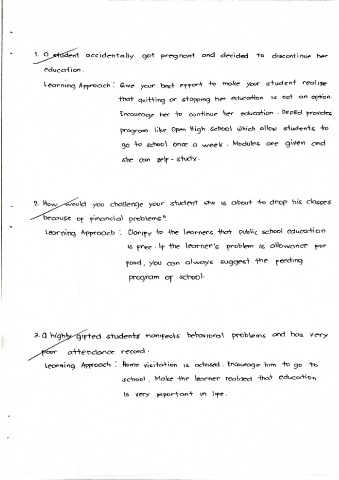 1. A student accidentally got pregnant and decided to discontinue her
education.
Learning Approach : Give your best effort to make your student realize
that quitting or stopping her education is not an option.
Encourage her to continue her education. DepEd provides
program like Open High School which allow students to
go to school once a week. Modules are given and
she can self-study.
2. How would you challenge your student who is about to drop his classes
because of financial problems?
Learning Approach : Clarify to the learners that public school education
is free. If the learner's problem is allowance for
food, you can always suggest the feeding
program of school.
3. A highly gifted students manifests behavioral problems and has very
poor attendance record.
Learning Approach : Home visitation is advised. Encourage him to go to
school. Make the learner realized that education
is very important in life.